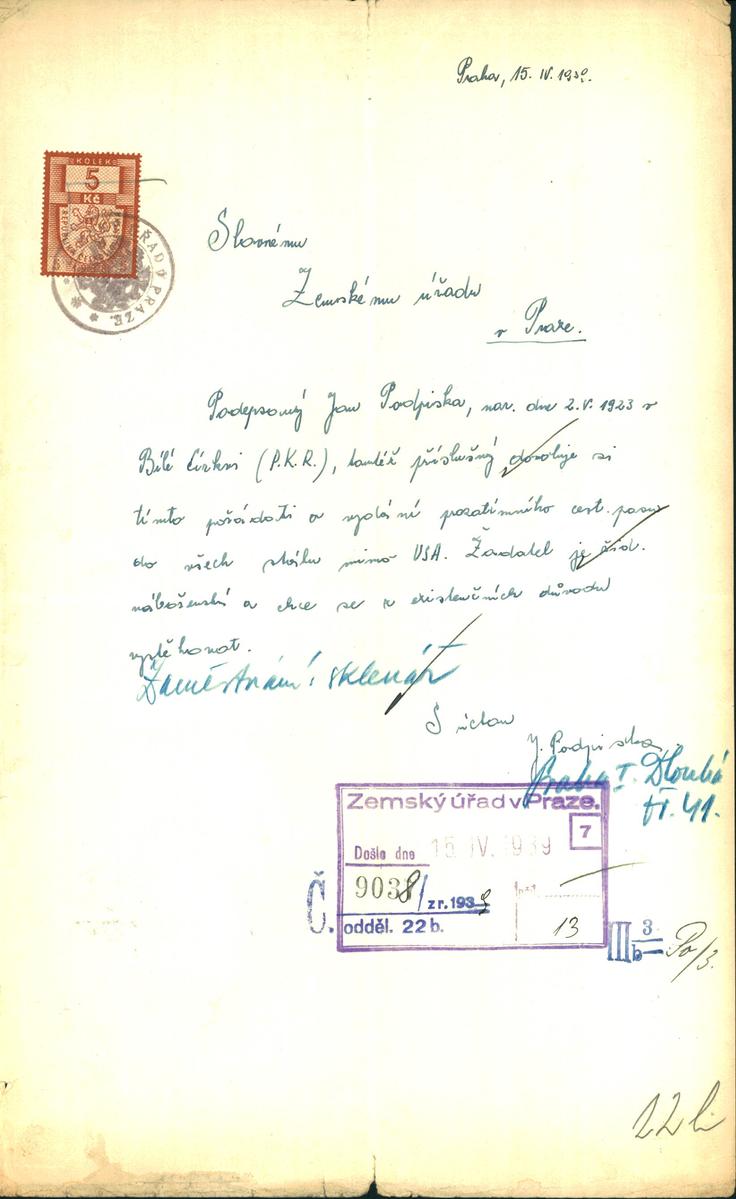 Praha, 15. IV. 1939.
KOLEK
5
Kč
ÚŘAD V PRAZE.
Slavnému
Zemskému úřadu
v Praze.
Podepsaný Jan Podpiska, nar. dne 2. V. 1923 v
Bílé Církvi (P.K.R.), tamtéž příslušný dovoluje si
tímto požádati o vydání prozatímního cest. pasu
do všech států mimo USA. Žadatel je žid.
náboženství a chce se z existenčních důvodů
vystěhovat.
Zaměstnání: sklenář
S úctou
J. Podpiska
Praha I. Dlouhá
tř. 41.
Zemský úřad v Praze.
7
Došlo dne 15. IV. 1939
Č. 9038/ z r. 1939
odděl. 22 b.
13
III 3 b
Po/3.
22 b